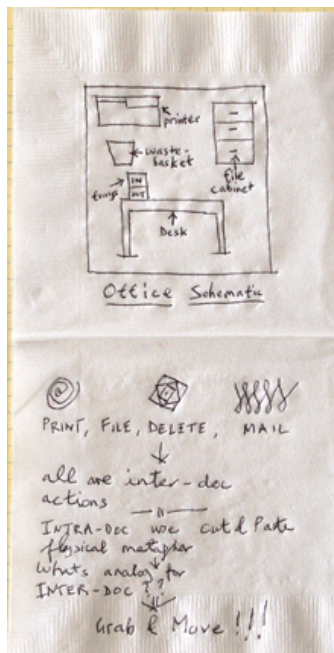 printer
waste-
basket
file
cabinet
trays
IN
OUT
Desk
Office Schematic
@
PRINT, FILE, DELETE, MAIL
all are inter-doc
actions
INTRA-DOC we cut & Paste
physical metaphor
What's analog for
INTER-DOC ??
Grab & Move!!!